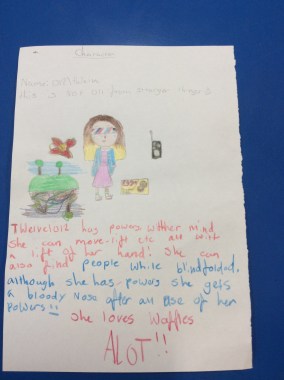 Character
this is
EGGO
Twelve/012 has powers wither mind
She can move-lift etc all with
a lift of her hand! She can
also find people while blindfolded.
although she has powers she gets
a bloody nose after all use of her
powers!!
She loves Waffles
ALOT!!